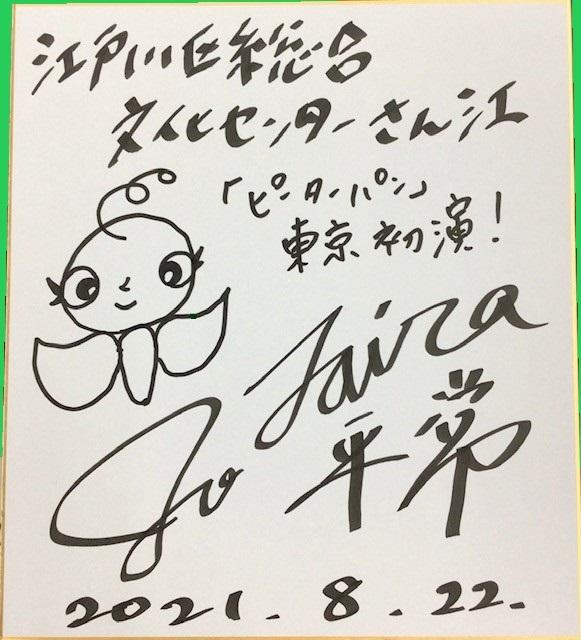 江戸川区総合
文化センターさん江
「ピーターパン」
東京初演！
Jo Taira
平常
2021.8.22.